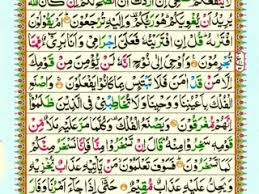 اَنْ اَنْصَحَ لَكُمْ اِنْ كَانَ اللّٰهُ
يُرِيْدُ اَنْ يُّغْوِيَكُمْ هُوَ رَبُّكُمْ وَاِلَيْهِ تُرْجَعُوْنَ ۝ اَمْ يَقُوْلُوْنَ
افْتَرٰىهُ قُلْ اِنِ افْتَرَيْتُهٗ فَعَلَيَّ اِجْرَامِيْ وَاَنَا بَرِيْٓءٌ مِّمَّا
تُجْرِمُوْنَ ۝ وَاُوْحِيَ اِلٰى نُوْحٍ اَنَّهٗ لَنْ يُّؤْمِنَ مِنْ قَوْمِكَ
اِلَّا مَنْ قَدْ اٰمَنَ فَلَا تَبْتَئِسْ بِمَا كَانُوْا يَفْعَلُوْنَ ۝ وَاصْنَعِ
الْفُلْكَ بِاَعْيُنِنَا وَوَحْيِنَا وَلَا تُخَاطِبْنِيْ فِي الَّذِيْنَ ظَلَمُوْا
اِنَّهُمْ مُّغْرَقُوْنَ ۝ وَيَصْنَعُ الْفُلْكَ وَكُلَّمَا مَرَّ عَلَيْهِ مَلَاٌ مِّنْ
قَوْمِهٖ سَخِرُوْا مِنْهُ قَالَ اِنْ تَسْخَرُوْا مِنَّا فَاِنَّا نَسْخَرُ مِنْكُمْ
كَمَا تَسْخَرُوْنَ ۝ فَسَوْفَ تَعْلَمُوْنَ مَنْ يَّاْتِيْهِ عَذَابٌ يُّخْزِيْهِ
وَيَحِلُّ عَلَيْهِ عَذَابٌ مُّقِيْمٌ ۝ حَتّٰۤى اِذَا جَآءَ اَمْرُنَا وَفَارَ